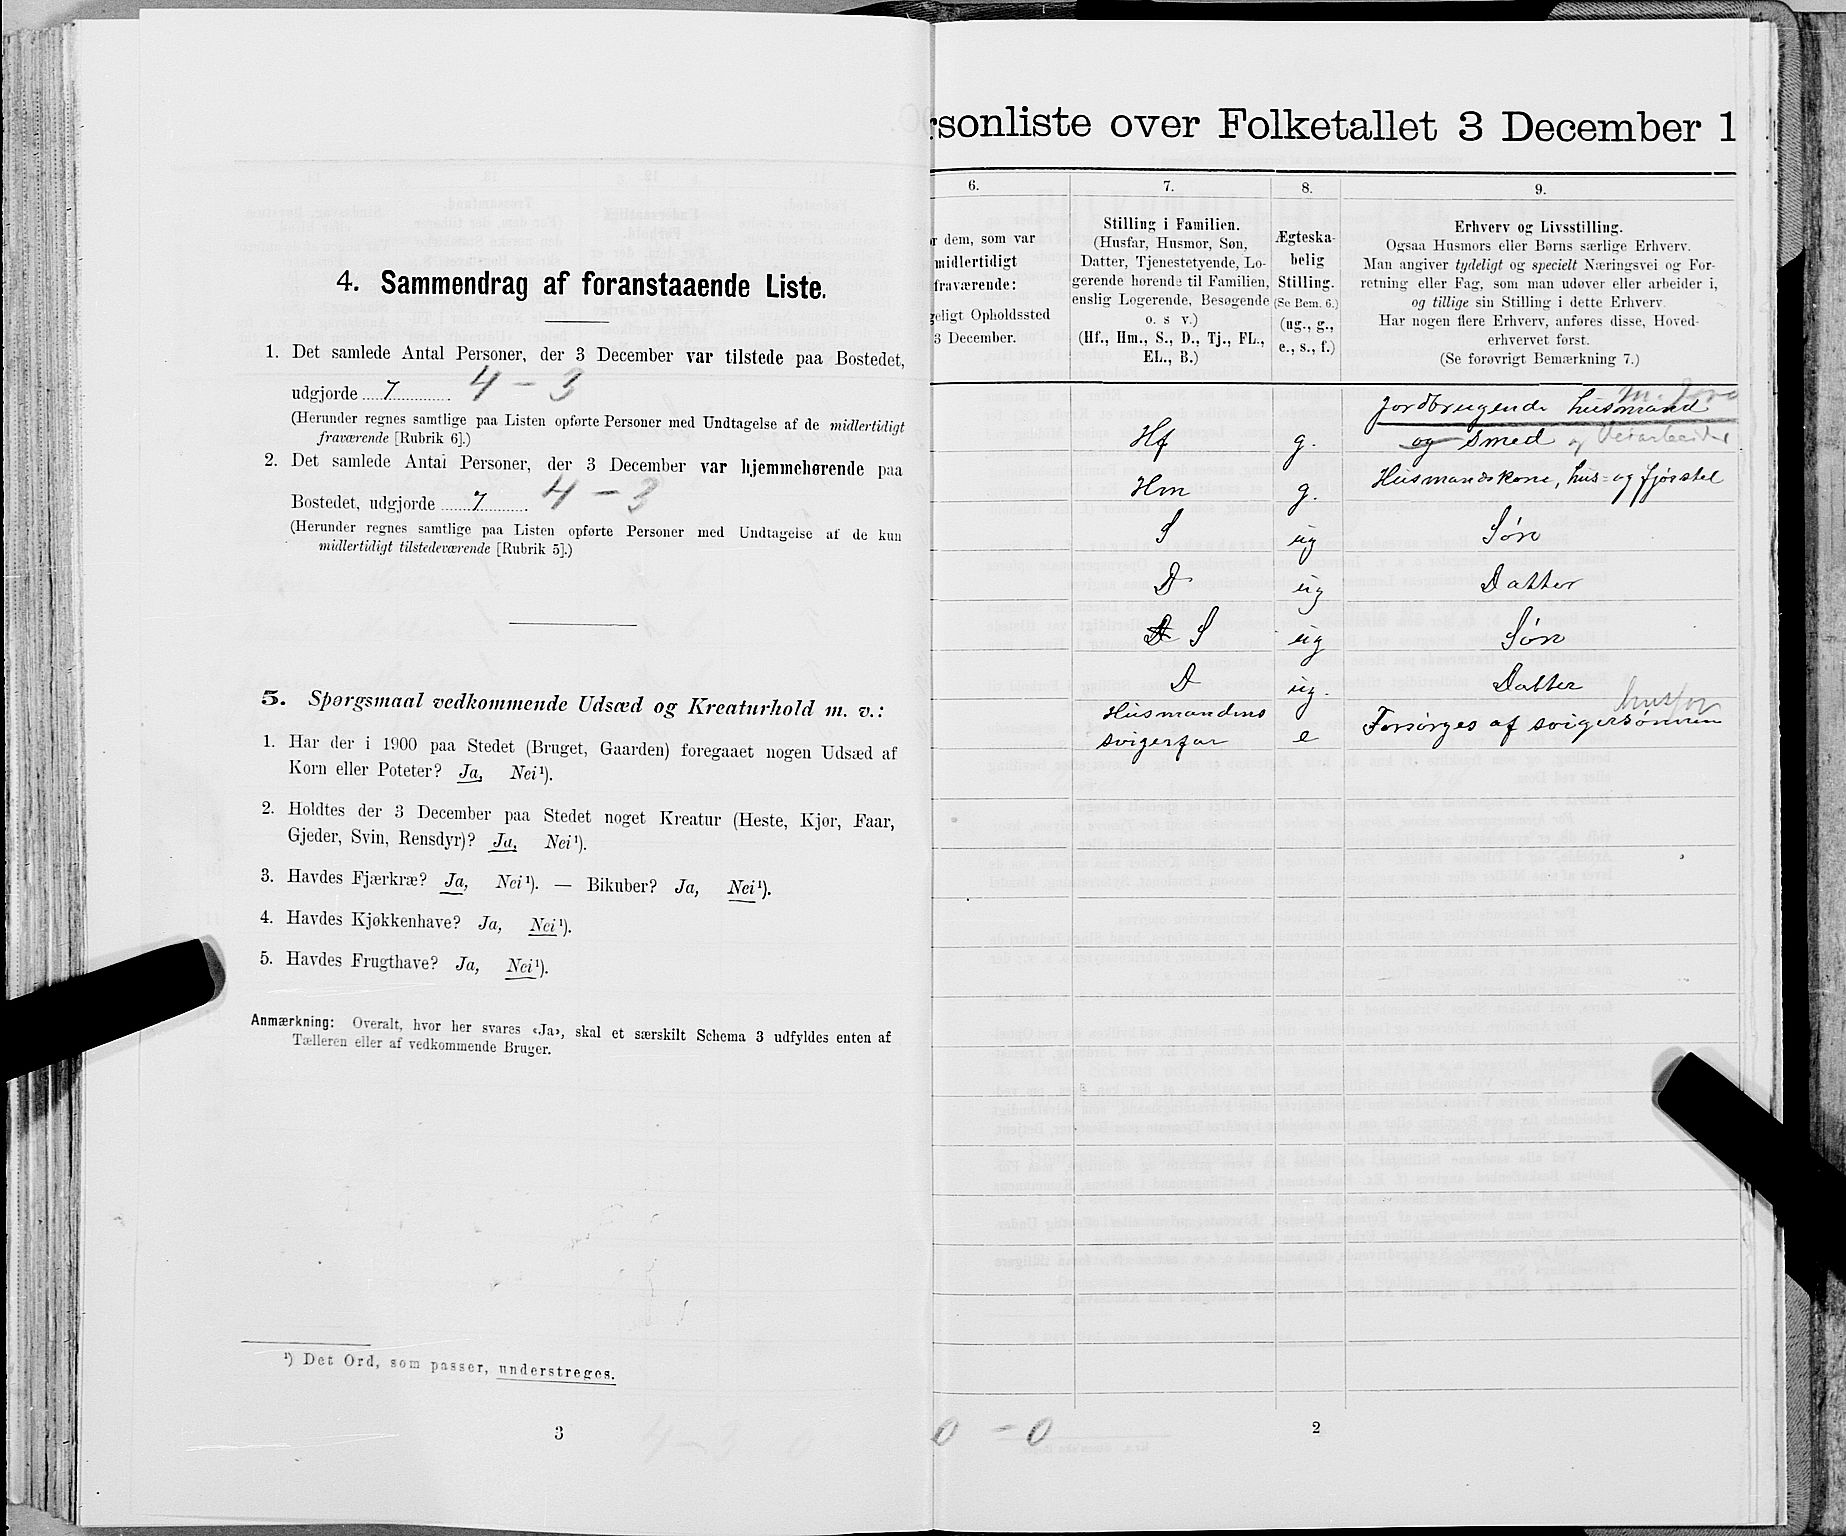 4. Sammendrag af foranstaaende Liste.
1. Det samlede Antal Personer, der 3 December var tilstede paa Bostedet,
udgjorde 7 4 – 3
(Herunder regnes samtlige paa Listen opførte Personer med Undtagelse af de midlertidigt
fraværende [Rubrik 6].)
2. Det samlede Antal Personer, der 3 December var hjemmehørende paa
Bostedet, udgjorde 7. 4 – 3
(Herunder regnes samtlige paa Listen opførte Personer med Undtagelse af de kun
midlertidigt tilstedeværende [Rubrik 5].)
5. Spørgsmaal vedkommende Udsæd og Kreaturhold m. v.:
1. Har der i 1900 paa Stedet (Bruget, Gaarden) foregaaet nogen Udsæd af
Korn eller Poteter? Ja, Nei¹).
2. Holdtes der 3 December paa Stedet noget Kreatur (Heste, Kjør, Faar,
Gjeder, Svin, Rensdyr)? Ja, Nei¹).
3. Havdes Fjærkræ? Ja, Nei¹). — Bikuber? Ja, Nei¹).
4. Havdes Kjøkkenhave? Ja, Nei¹).
5. Havdes Frugthave? Ja, Nei¹).
Anmærkning: Overalt, hvor her svares «Ja», skal et særskilt Schema 3 udfyldes enten af
Tælleren eller af vedkommende Bruger.
¹) Det Ord, som passer, understreges.
3
4 – 3 0
rsonliste over Folketallet 3 December 1
6.
r dem, som var
midlertidigt
fraværende:
geligt Opholdssted
3 December.
7.
Stilling i Familien.
(Husfar, Husmor, Søn,
Datter, Tjenestetyende, Lo-
gerende hørende til Familien,
enslig Logerende, Besøgende
o. s v.)
(Hf., Hm., S., D., Tj., FL.,
EL., B.)
8.
Ægteska-
belig
Stilling.
(Se Bem. 6.)
(ug., g.,
e., s., f.)
9.
Erhverv og Livsstilling.
Ogsaa Husmors eller Børns særlige Erhverv.
Man angiver tydeligt og specielt Næringsvei og For-
retning eller Fag, som man udøver eller arbeider i,
og tillige sin Stilling i dette Erhverv.
Har nogen flere Erhverv, anføres disse, Hoved-
erhvervet først.
(Se forøvrigt Bemærkning 7.)
m. Jord
Jordbrugende husmand
Hf g. og Smed og Veiarbeider
Hm g. Husmandskone, hus- og fjøsstel
S ug Søn
D ug Datter
D S ug Søn
D ug. Datter
husfor
Husmandens
svigerfar e Forsørges af svigersønnen
0 – 0
2